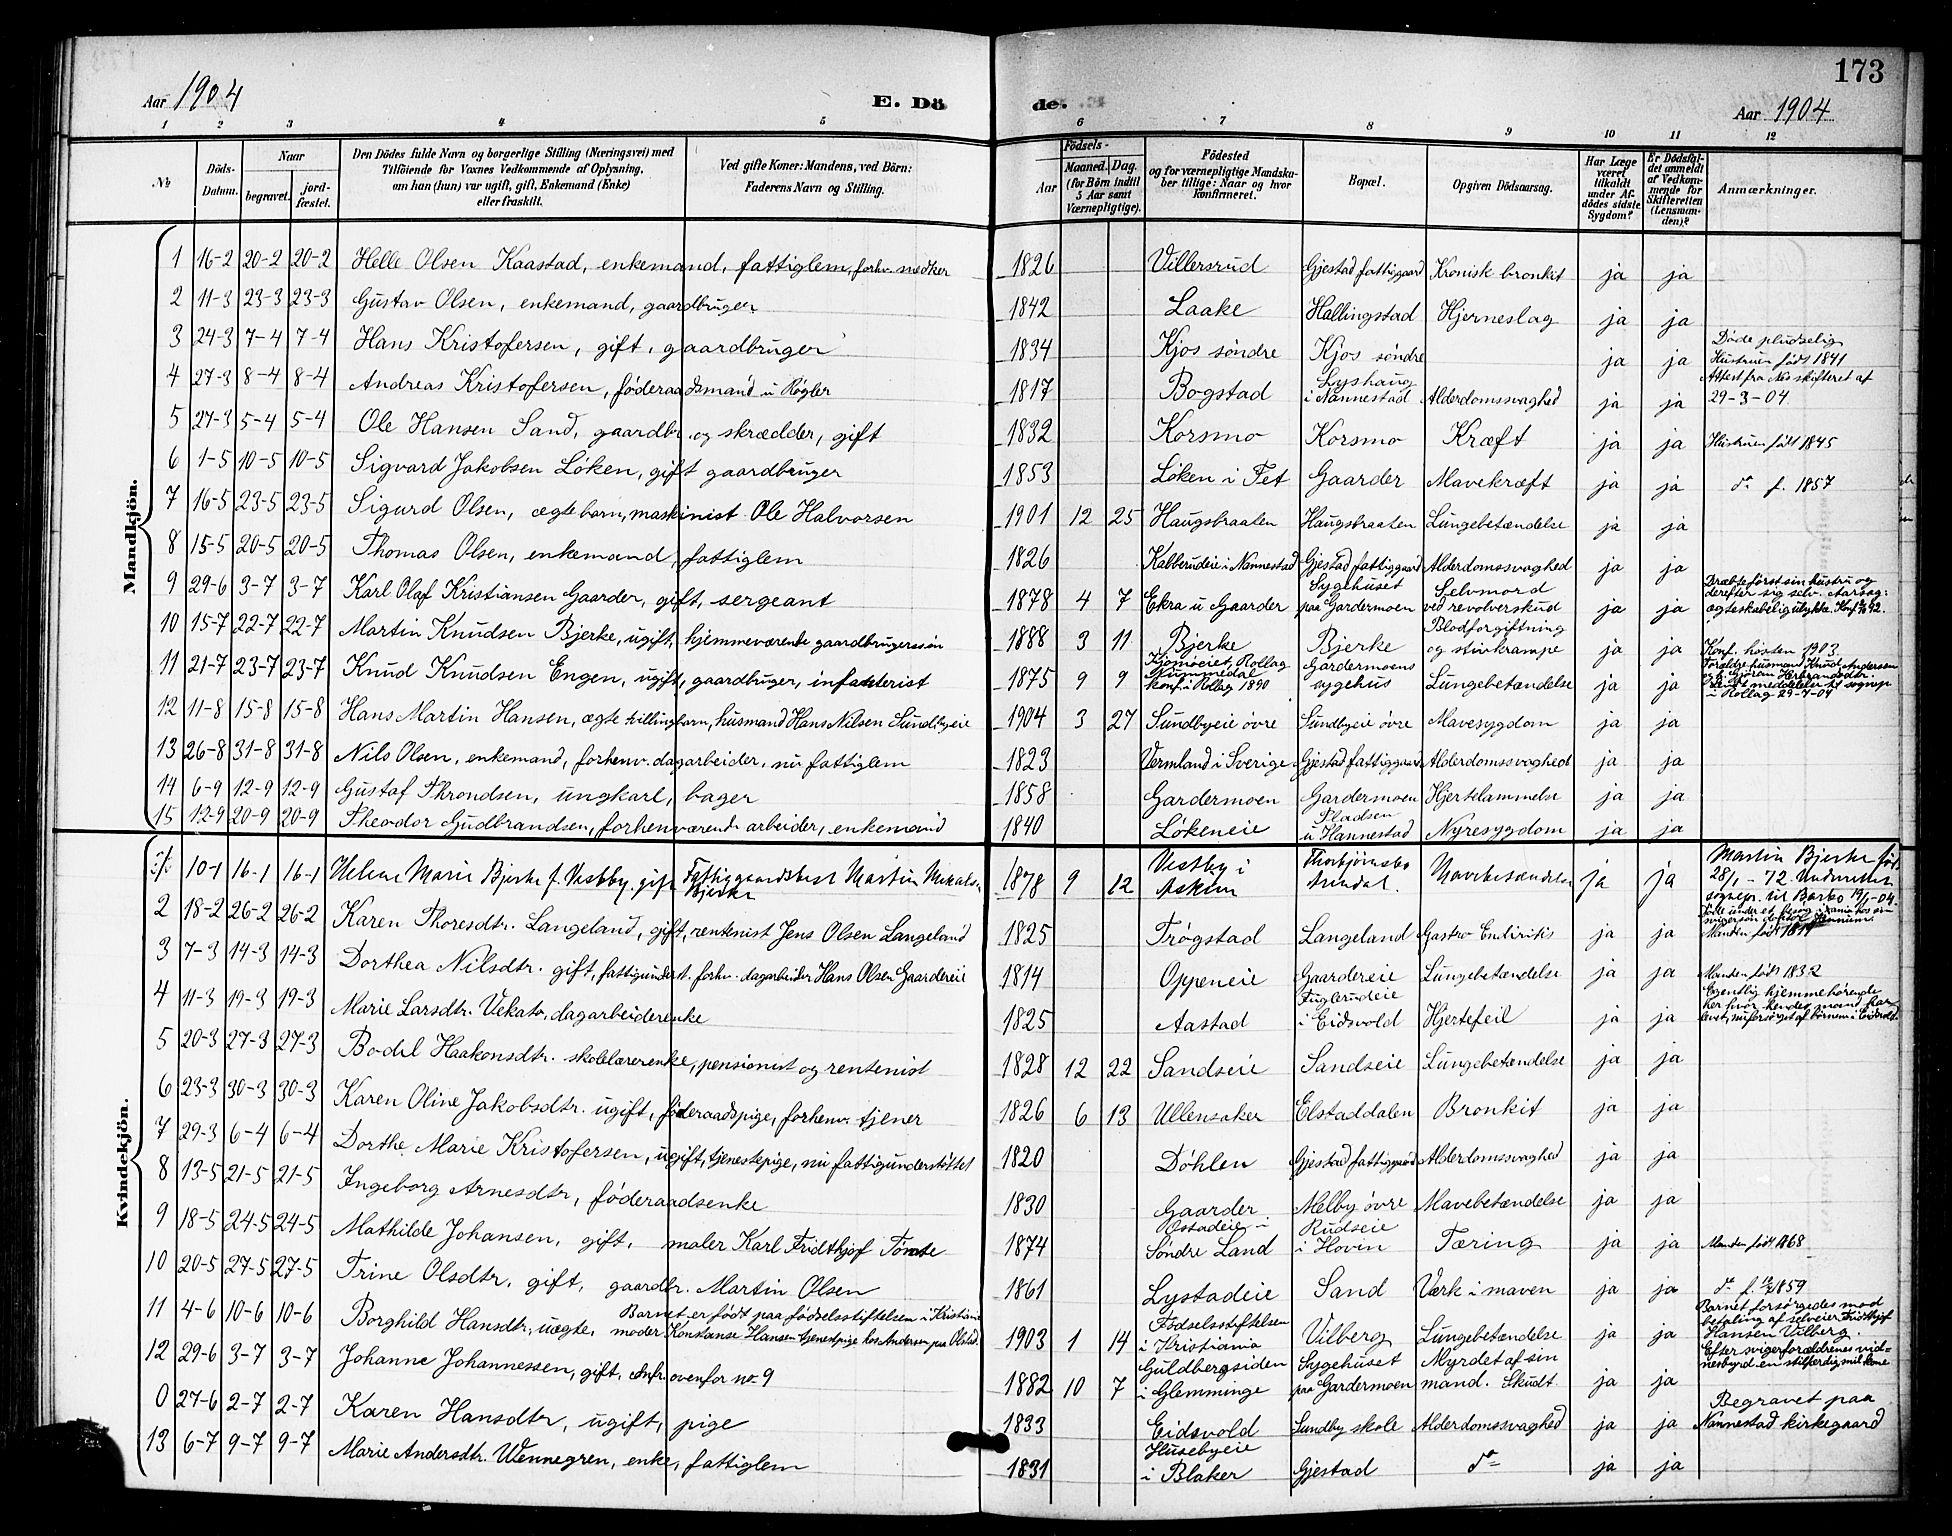 173
Aar 1904 E. Dö de. Aar 1904
1 2 3 4 5 6 7 8 9 10 11 12
№ Döds-Datum. Naar begravet. jord-fæstet. Den Dödes fulde Navn og borgerlige Stilling (Næringsvei) med Tilföiende for Voxnes Vedkommende af Oplysning, om han (hun) var ugift, gift, Enkemand (Enke) eller fraskilt. Ved gifte Koner: Mandens, ved Börn: Faderens Navn og Stilling. Födsels- Aar Maaned. Dag. (for Börn indtil 5 Aar samt Værnepligtige). Födested og for værnepligtige Mandskaber tillige: Naar og hvor konfirmeret. Bopæl. Opgiven Dödsaarsag. Har Læge været tilkaldt under Afdödes sidste Sygdom? Er Dödsfaldet anmeldt af Vedkommende for Skifteretten (Lensmanden)? Anmærkninger.
Mandkjön.
1 16-2 20-2 20-2 Helle Olsen Kaastad, enkemand, fattiglem, forhv. 1826 Villersrud Gjestad fattiggaard Kronisk bronkit ja ja
2 11-3 23-3 23-3 Gustav Olsen, enkemand, gaardbruger 1842 Laake Hallingstad Hjerneslag ja ja
3 24-3 7-4 7-4 Hans Kristofersen, gift, gaardbruger 1834 Kjos søndre Kjos søndre ja ja Døde pludselig Hustruen født 1841
4 27-3 8-4 8-4 Andreas Kristofersen, føderaadsmand u Røgler 1817 Bogstad Lyshaug i Nannestad Alderdomssvaghed ja ja Attest fra Nes skifteret af 29-3-04
5 27-3 5-4 5-4 Ole Hansen Sand, gaardbr. og skrædder, gift 1832 Korsmo Korsmo Kræft ja ja Hustruen født 1845
6 1-5 10-5 10-5 Sigvard Jakobsen Løken, gift gaardbruger 1853 Løken i Fet Gaarder Mavekræft ja ja do f. 1857
7 16-5 23-5 23-5 Sigurd Olsen, ægte barn, maskinist Ole Halvorsen 1901 12 25 Haugsbraaten Haugsbraaten Lungebetændelse ja ja
8 15-5 20-5 20-5 Thomas Olsen, enkemand, fattiglem 1826 Kalberudeie i Nannestad Gjestad fattiggaard Alderdomssvaghed ja ja
9 29-6 3-7 3-7 Karl Olaf Kristiansen Gaarder, gift, sergeant 1878 4 7 Ekra u Gaarder Sygehuset paa Gardermoen Selvmord ved revolverskud ja ja Dræbte først sin hustru og derefter sig selv. Aarsag: ægteskabelig ulykke.
10 15-7 22-7 22-7 Martin Knudsen Bjerke, ugift, hjemmeværende gaardbrugerssøn 1888 3 11 Bjerke Bjerke Blodforgiftning og stivkrampe ja ja Konf. høsten 1903
11 21-7 23-7 23-7 Knud Knudsen Engen, ugift, gaardbruger, infanterist 1875 9 9 Rollag Nummedal konf. i Rollag 1890 Gardermoens sygehus Lungebetændelse ja ja Forældre: husmand Knud Andersen og h. Gjøran Herbrandsdtr. meddelelse til sognep i Rollag 29-7-04
12 11-8 15-8 15-8 Hans Martin Hansen, ægte tvillingbarn, husmand Hans Nilsen Sundbyeie 1904 3 27 Sundbyeie øvre Sundbyeie øvre Mavesygdom ja ja
13 26-8 31-8 31-8 Nils Olsen, enkemand, forhenv. dagarbeider, nu fattiglem 1823 Vermland i Sverige Gjestad fattiggaard Alderdomssvaghed ja ja
14 6-9 12-9 12-9 Gustaf Throndsen, ungkarl, bager 1858 Gardermoen Gardermoen Hjertelammelse ja ja
15 12-9 20-9 20-9 Theodor Gudbrandsen, forhenværende arbeider, enkemand 1840 Løkeneie Pladsen u Hannestad Nyresygdom ja ja
Kvindekjön.
10-1 16-1 16-1 Helene Marie Bjerke f. Vestby, gift Fattiggaardsbest. Martin Bjerke 1878 9 12 Vestby i Askim Arendal. Mavebetændelse ja ja Martin Bjerke født 28/1-72 sognepr. til Barbo 19/1-04
2 18-2 26-2 26-2 Karen Thoresdtr. Langeland, gift, rentenist Jens Olsen Langeland 1825 Trøgstad Langeland Gastro Entiritis ja ja Døde under et besøg
3 7-3 14-3 14-3 Dorthea Nilsdtr. gift, fattigunderst. forhv. dagarbeider Hans Olsen Gaardereie 1814 Oppeneie Gaardereie Lungebetændelse ja ja Manden født 1832
4 11-3 19-3 19-3 Marie Larsdtr. Vekato, dagarbeiderenke 1825 Aastad Fuglerudeie i Eidsvold Hjertefeil ja ja Egentlig hjemmehørende her hvor hendes mand har levet, nu forsørget af børnene i Eidsvold.
5 20-3 27-3 27-3 Bodil Haakonsdtr. skolelærerenke, pensionist og rentenist 1828 12 22 Sandseie Sandseie Lungebetændelse ja ja
6 23-3 30-3 30-3 Karen Oline Jakobsdtr. ugift, føderaadspige, forhenv. tjener 1826 6 13 Ullensaker Elstaddalen Bronkit ja ja
7 29-3 6-4 6-4 Dorthe Marie Kristofersen, ugift, tjenestepige, nu fattigunderstøttet 1820 Døhlen Gjestad fattiggaard Alderdomssvaghed ja ja
8 13-5 21-5 21-5 Ingeborg Arnesdtr, føderaadsenke 1830 Gaarder Melby øvre Mavebetændelse ja ja
9 18-5 24-5 24-5 Mathilde Johansen, gift, maler Karl Fridthjof Tømte 1874 Østadeie i Søndre Land Rudseie i Hovin Tæring ja ja Manden født 1868
10 20-5 27-5 27-5 Trine Olsdtr. gift, gaardbr. Martin Olsen 1861 Lystadeie Sand Værk i maven ja ja do f. 1859
11 4-6 10-6 10-6 Borghild Hansdtr., uægte, Barnet er født paa fødselsstiftelsen i Kristiania moder Konstanse Hansen tjenestpige hos Andersen paa Olstad 1903 1 14 Fødselsstiftelsen i Kristiania Vilberg Lungebetændelse ja ja Barnet forsørgedes mod betaling af selveier Fridthjof Hansen Vilberg.
12 29-6 3-7 3-7 Johanne Johannessen, gift, cnfr ovenfor no. 9 1882 10 7 Guldbergsiden i Glemminge Sygehuset paa Gardermoen Myrdet af sin mand. Skudt ja ja Efter svigerforældrenes vidnesbyrd en stilferdig mild kone
0 27-6 2-7 2-7 Karen Hansdtr, ugift, pige 1833 Eidsvold Sundby skole Alderdomssvaghed ja ja Begravet paa Nannestad kirkegaard
13 6-7 9-7 9-7 Marie Andersdtr. Wennegren, enke, fattiglem 1831 Husebyeie i Blaker Gjestad do ja ja